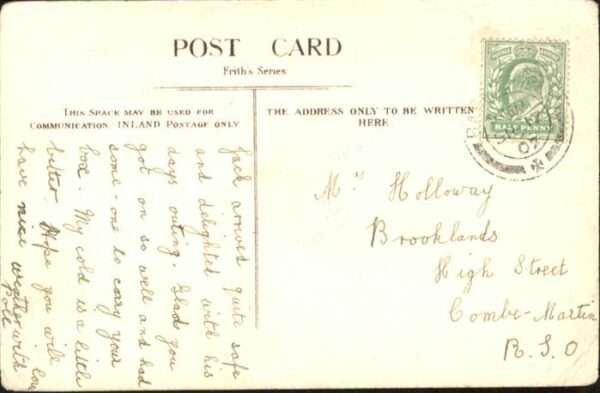 POST CARD
Frith's Series
THIS SPACE MAY BE USED FOR
COMMUNICATION INLAND POSTAGE ONLY
THE ADDRESS ONLY TO BE WRITTEN
HERE
Jack arrived quite safe
and delighted with his
days outing. Glad you
got on so well and had
some-one to carry your
box. My cold is a little
better. Hope you will
have nice weather with love
Poll
HALFPENNY
Mrs Holloway
Brooklands
High Street
Combe-Martin
R.S.O